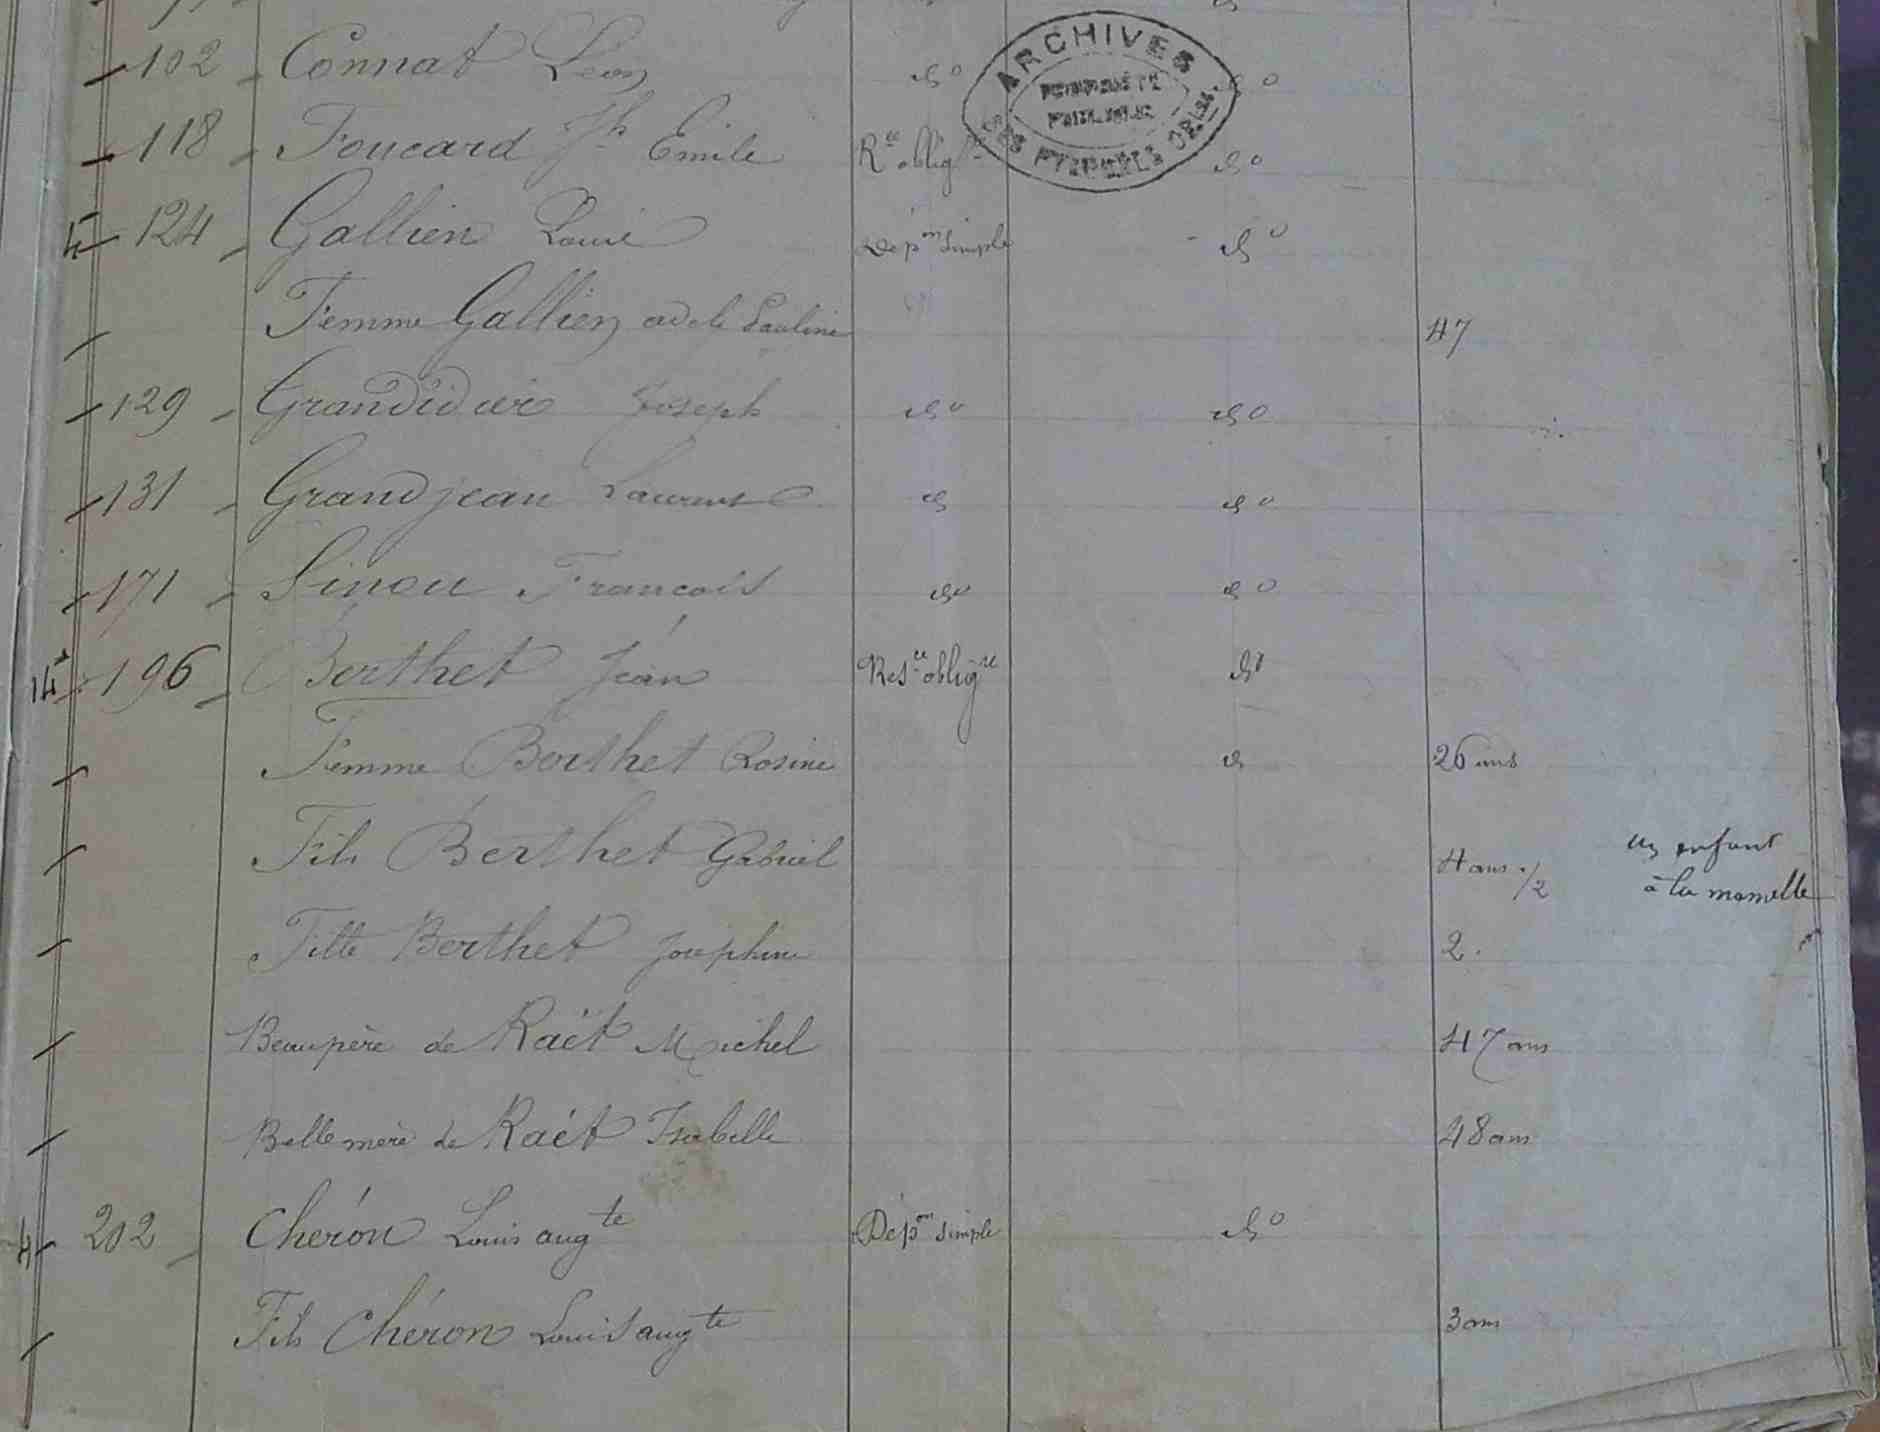 102 Connat Léon do do
ARCHIVES
118 Foucard Jh Emile Rce obligre do
124 Gallien Louis Dépon simple do
Femme Gallien adele Pauline 47
129 Grandidier Joseph do do
131 Grandjean Laurent d do
171 Sinou Francois do do
14 196 Berthet Jean Resce obligre do
Femme Berthet Rosine d 26 ans
Fils Berthet Gabriel 4 ans 1/2 un enfant
à la mamelle
Fille Berthet Josephine 2.
Beaupère de Raët Michel 47 ans
Belle mère de Raët Isabelle 48 ans
202 Chéron Louis augte Dépon simple do
Fils Chéron Louis augte 3 ans